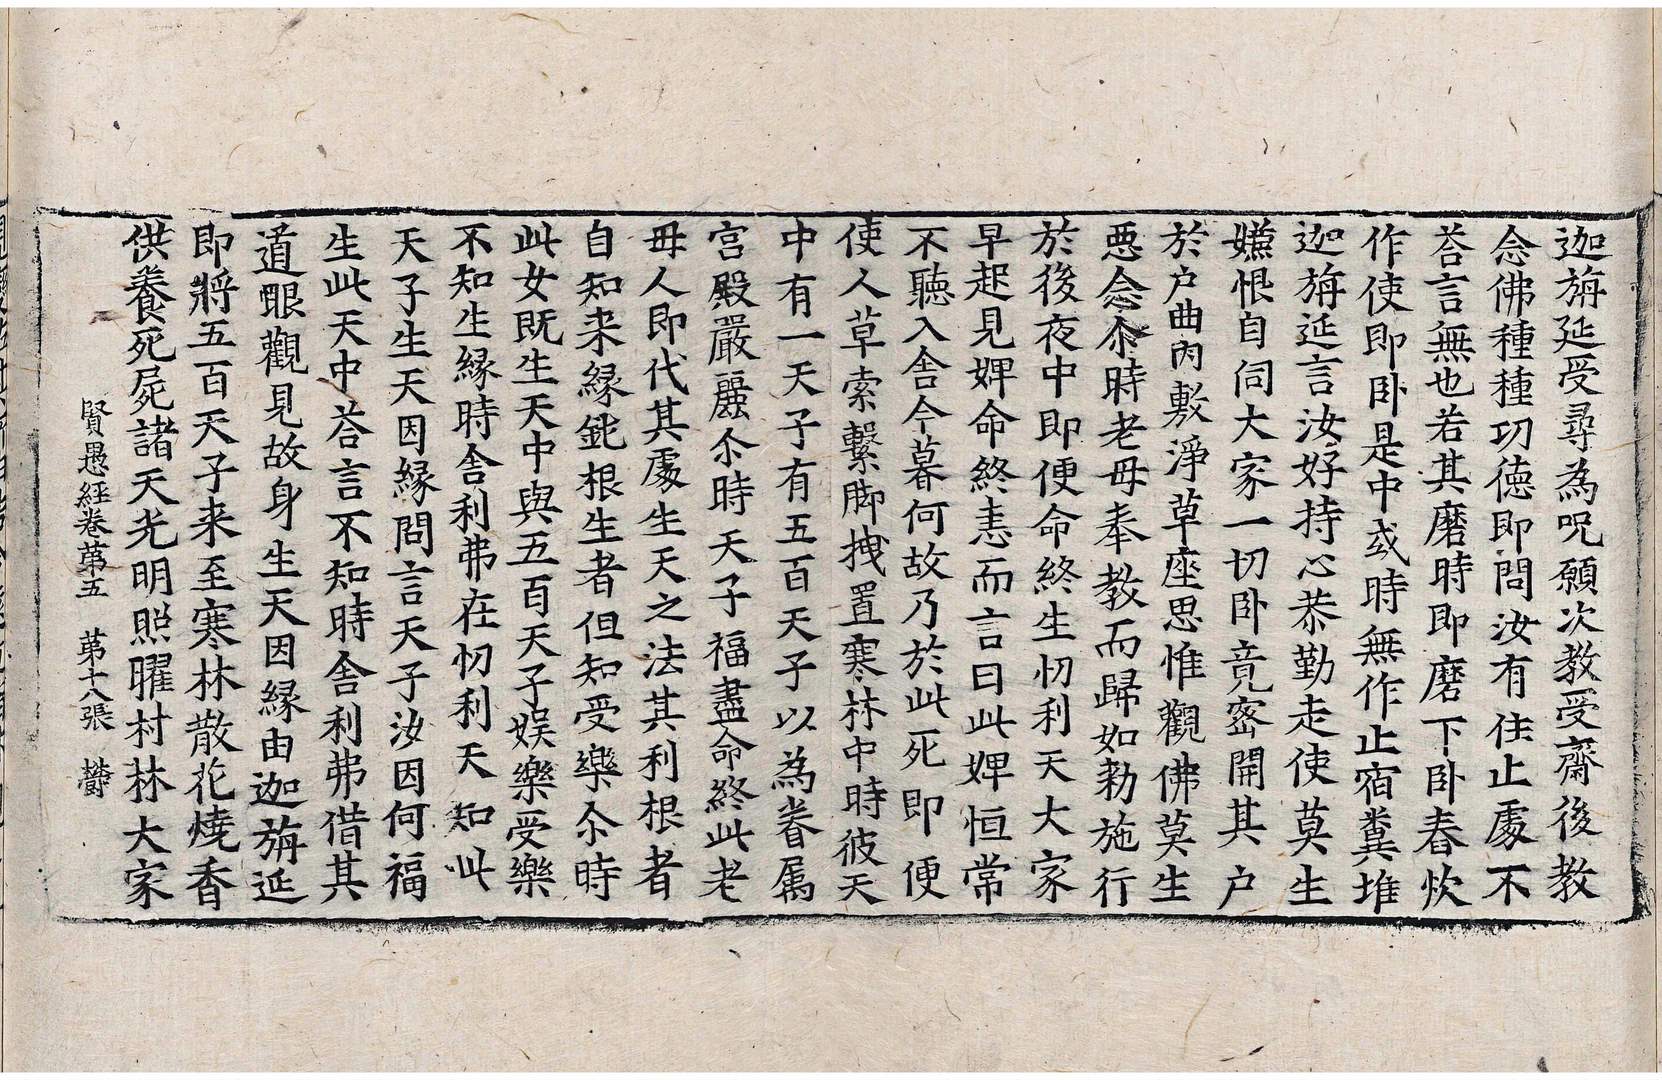 迦旃延受尋為呪願次教受齋後教
念佛種種功德即問汝有住止處不
荅言無也若其磨時即磨下卧舂炊
作使即卧是中或時無作止宿糞堆
迦旃延言汝好持心恭勤走使莫生
嫌恨自伺大家一切卧竟密開其户
於户曲內敷淨草座思惟觀佛莫生
惡念尒時老母奉教而歸如勑施行
於後夜中即便命終生忉利天大家
早起見婢命終恚而言曰此婢恒常
不聽入舍今暮何故乃於此死即便
使人草索繫脚拽置寒林中時彼天
中有一天子有五百天子以為眷属
宫殿嚴麗尒時天子福盡命終此老
母人即代其處生天之法其利根者
自知来緣鈍根生者但知受樂尒時
此女既生天中與五百天子娱樂受樂
不知生緣時舍利弗在忉利天知此
天子生天因緣問言天子汝因何福
生此天中荅言不知時舍利弗借其
道眼觀見故身生天因緣由迦旃延
即將五百天子来至寒林散花燒香
供養死屍諸天光明照曜村林大家
賢愚経卷苐五　苐十八張　欝